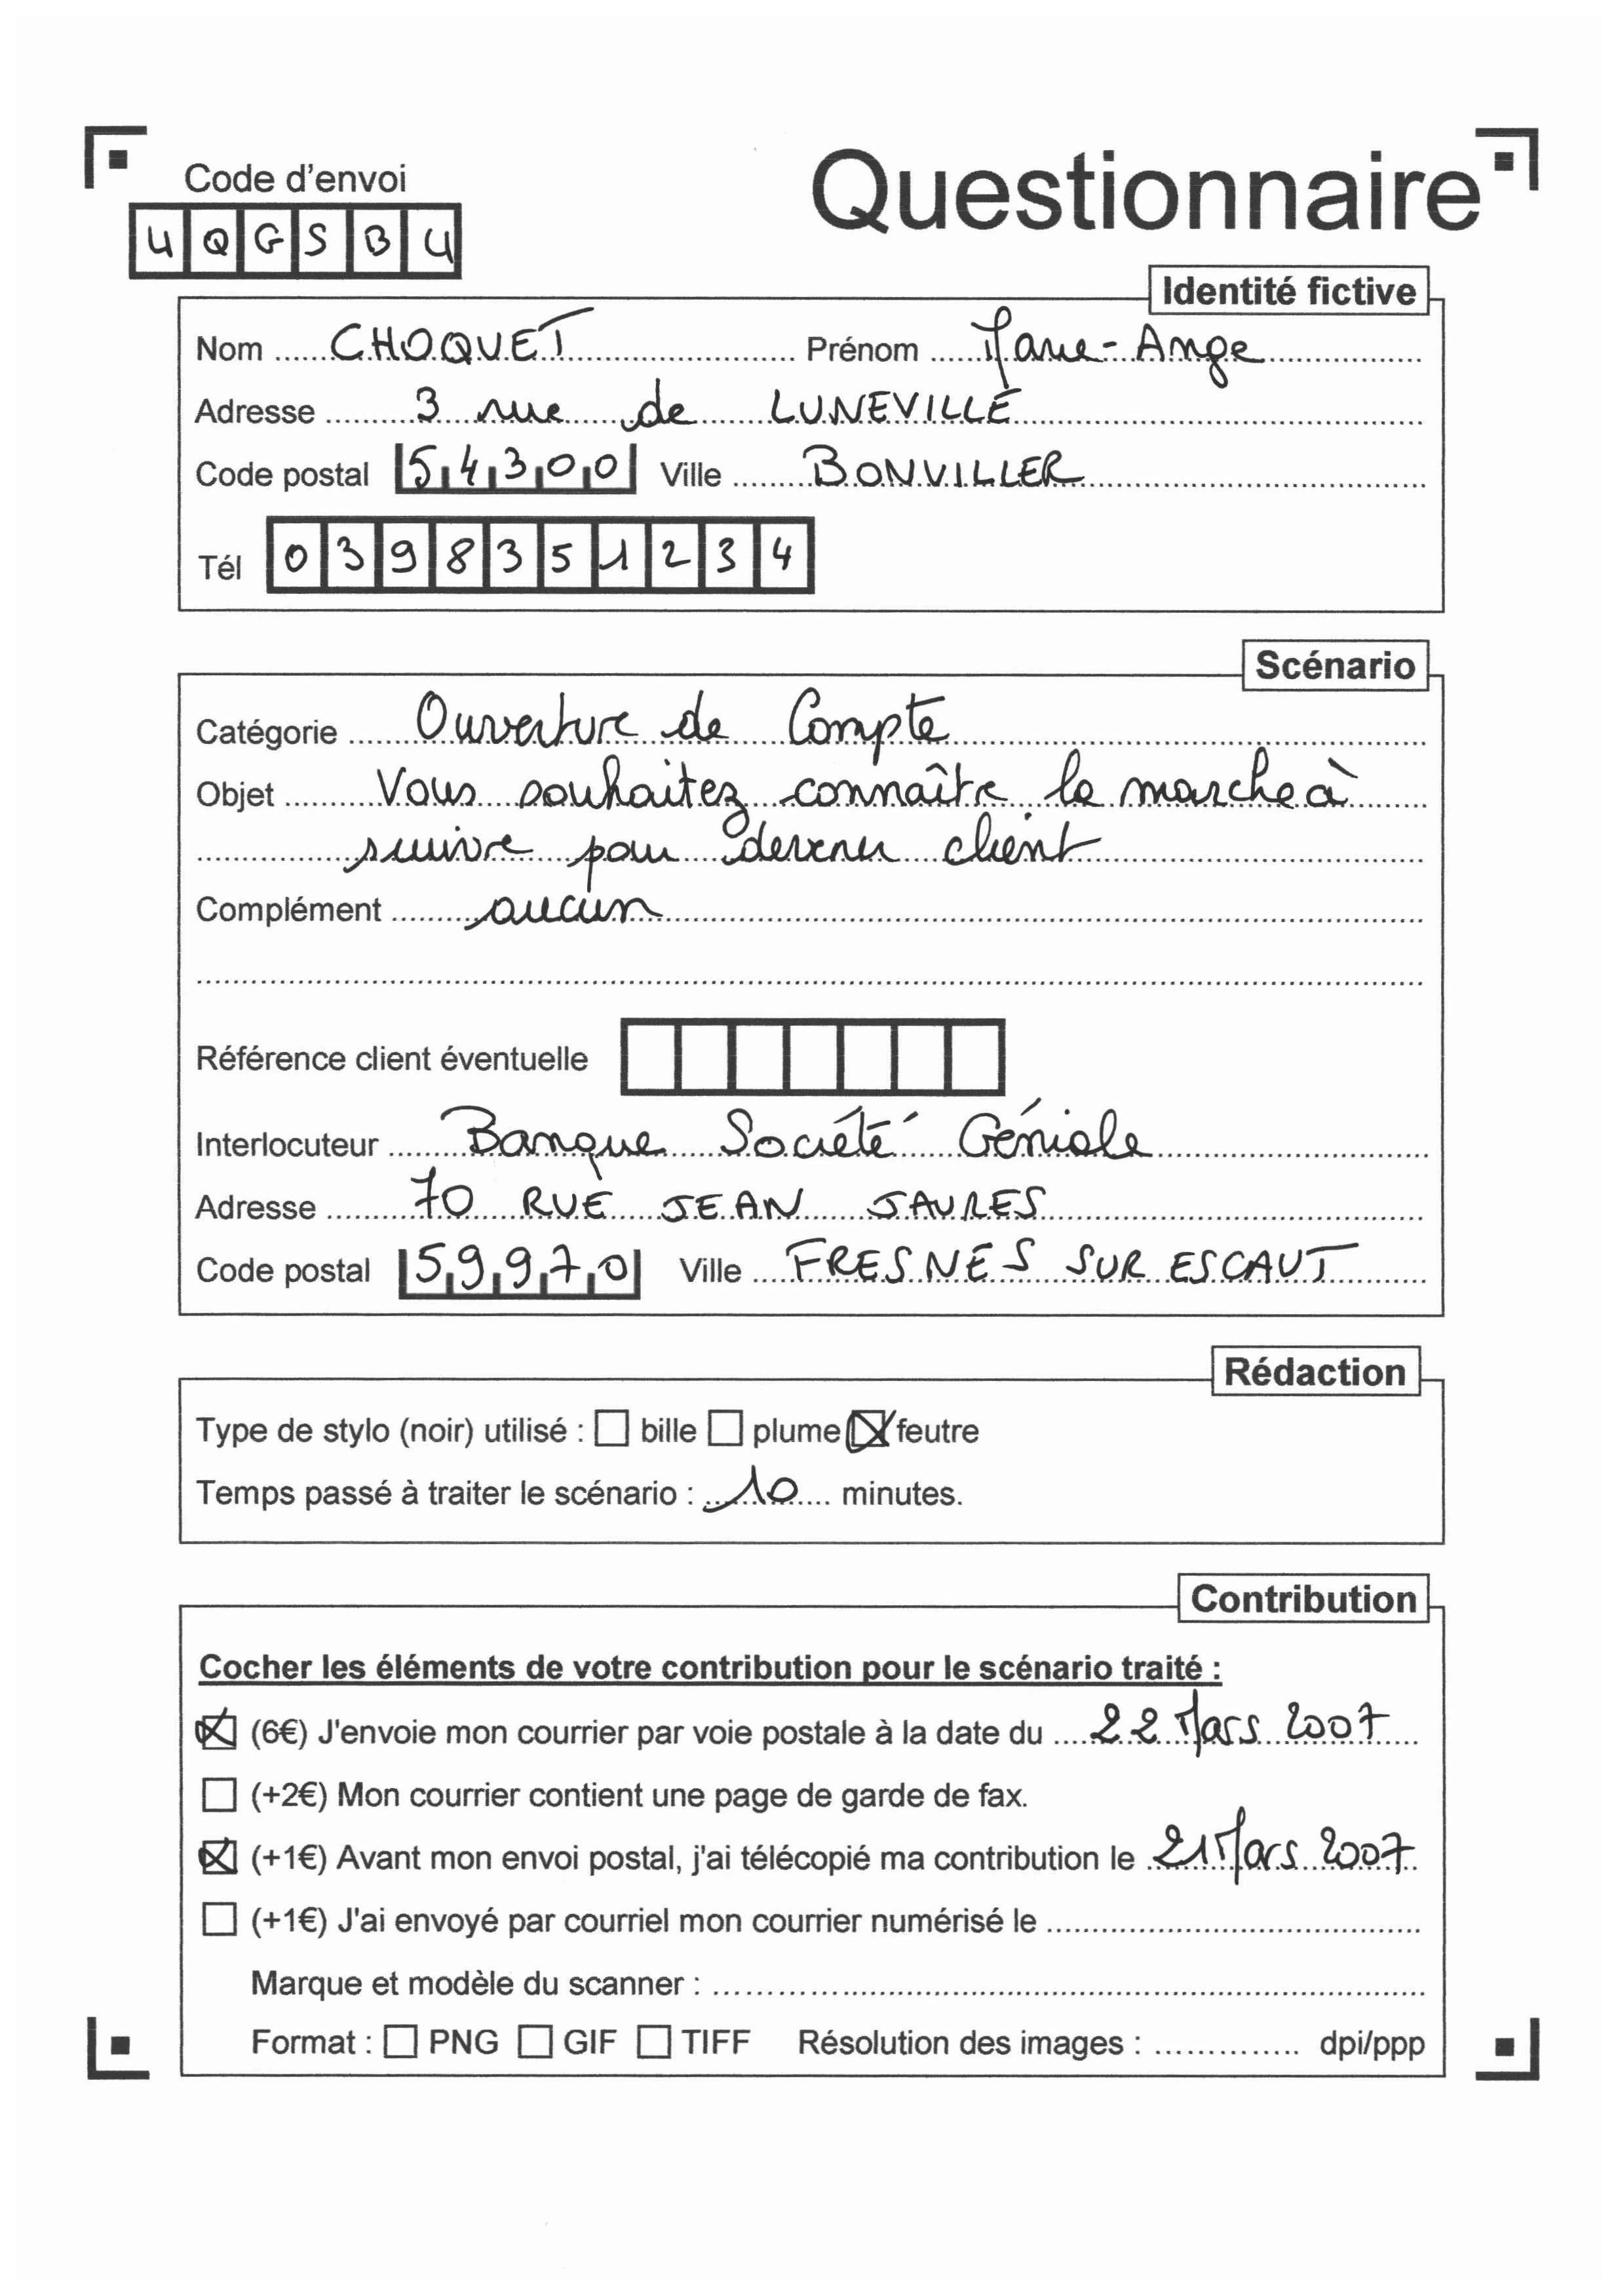 Code d'envoi
Questionnaire
4QGSB4
Identité fictive
Nom CHOQUET Prénom Marie-Ange
Adresse 3 rue de LUNEVILLE
Code postal 54300 Ville BONVILLER
Tél 0398351234
Scénario
Catégorie Ouverture de Compte
Objet Vous souhaitez connaître la marche à
suivre pour devenir client
Complément aucun
Référence client éventuelle
Interlocuteur Banque Société Géniale
Adresse 70 RUE JEAN JAURES
Code postal 59970 Ville FRESNES SUR ESCAUT
Rédaction
Type de stylo (noir) utilisé : bille plume feutre
Temps passé à traiter le scénario : 10 minutes.
Contribution
Cocher les éléments de votre contribution pour le scénario traité :
(6€) J'envoie mon courrier par voie postale à la date du 22 Mars 2007
(+2€) Mon courrier contient une page de garde de fax.
(+1€) Avant mon envoi postal, j'ai télécopié ma contribution le 21 Mars 2007
(+1€) J'ai envoyé par courriel mon courrier numérisé le
Marque et modèle du scanner :
Format : PNG GIF TIFF Résolution des images : dpi/ppp